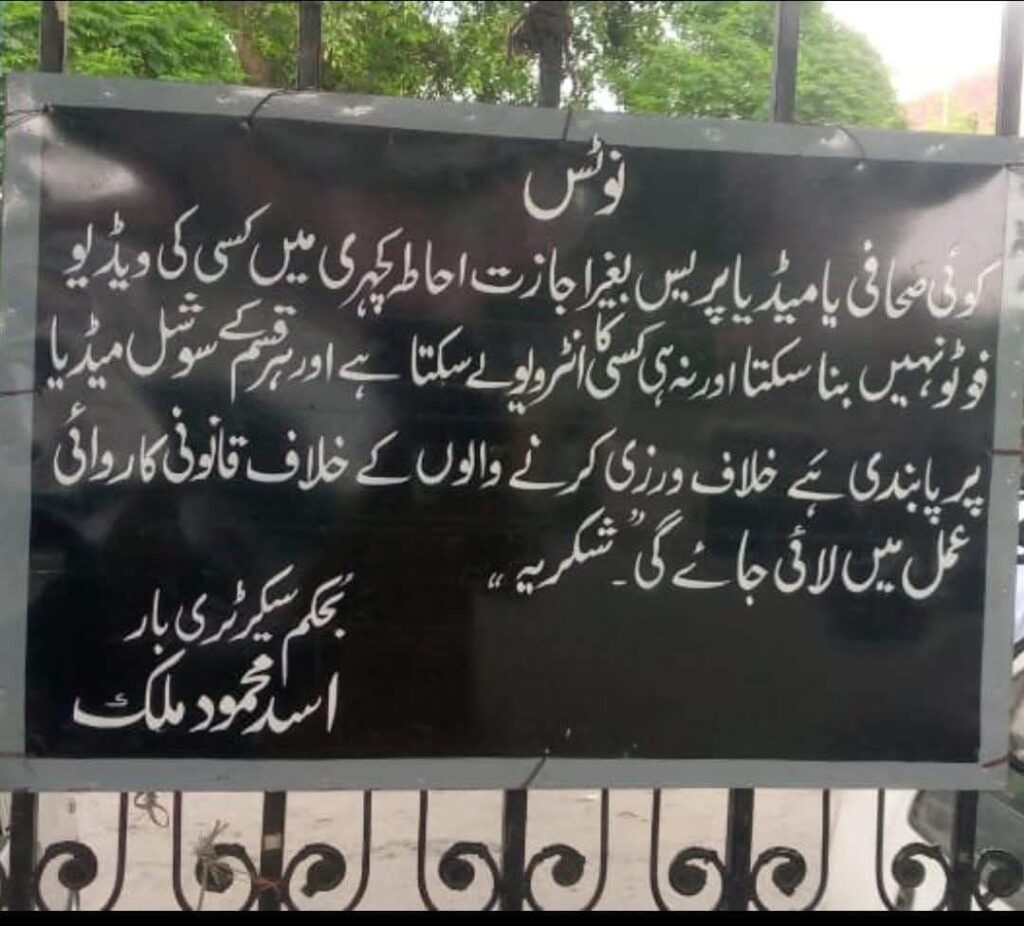 نوٹس
کوئی صحافی یا میڈیا پریس بغیر اجازت احاطہ کچہری میں کسی کی ویڈیو
فوٹو نہیں بنا سکتا اور نہ ہی کسی کا انٹرویو لے سکتا ہے اور ہر قسم کے سوشل میڈیا
پر پابندی ہے خلاف ورزی کرنے والوں کے خلاف قانونی کاروائی
عمل میں لائی جائے گی۔ "شکریہ"
بحکم سیکرٹری بار
اسد محمود ملک